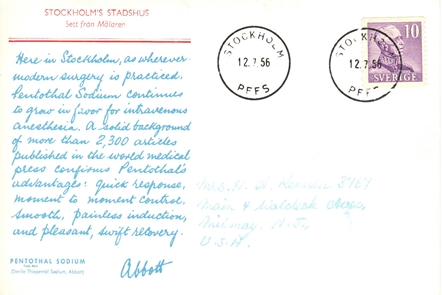 STOCKHOLM'S STADSHUS
Sett från Mälaren
Here in Stockholm, as wherever
modern surgery is practiced,
Pentothal Sodium continues
to grow in favor for intravenous
anesthesia. A solid background
of more than 2,300 articles
published in the world medical
press confirms Pentothal's
advantages: quick response,
moment to moment control,
smooth, painless induction,
and pleasant, swift recovery.
Abbott
PENTOTHAL SODIUM
(Sterile Thiopental Sodium, Abbott)
STOCKHOLM
12.7.56
PFFS
STOCKHOLM
12.7.56
PFFS
10
SVERIGE
Main &
N.J.
U.S.A.